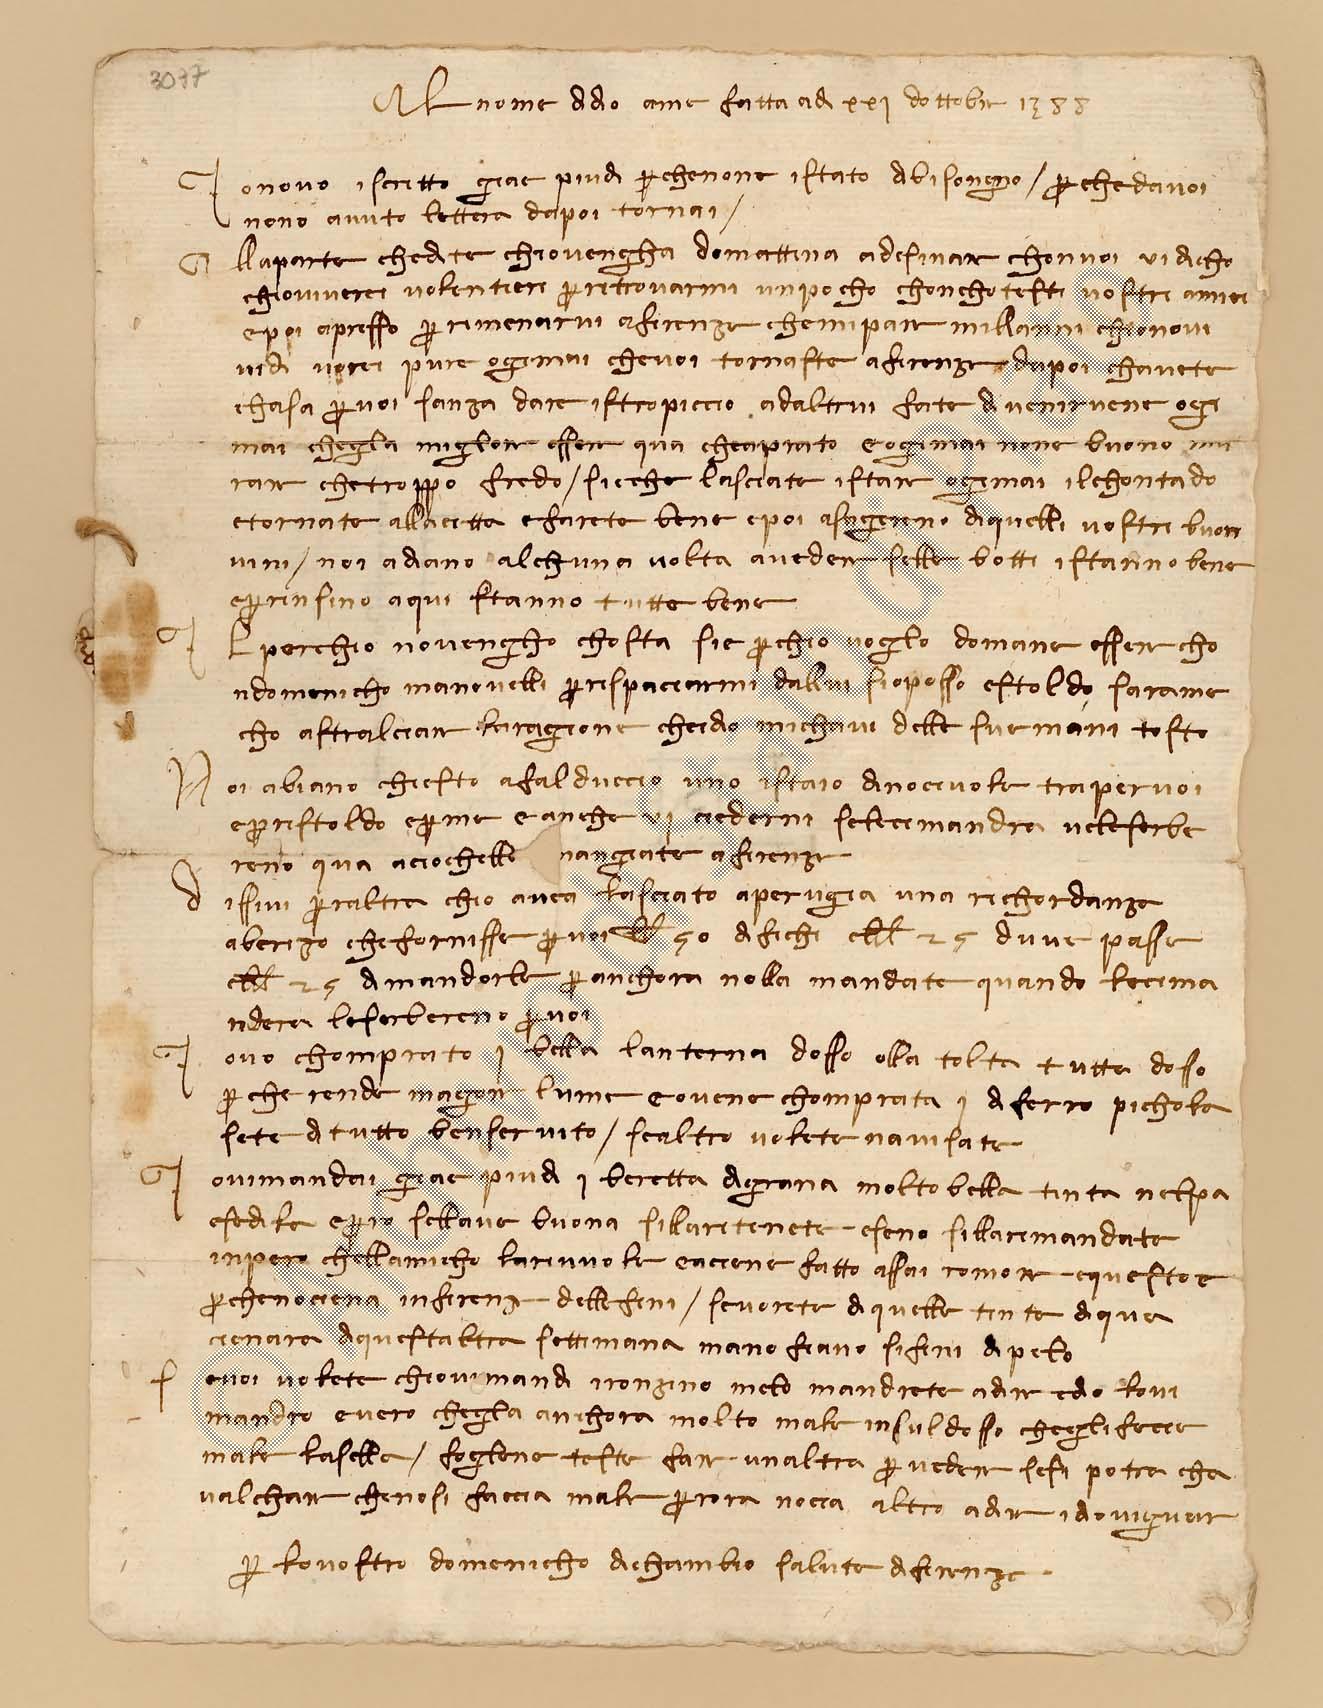 3077
Al nome d dio ame fatta a dì xxi d ottobre 1388
Io nonvo iscritto giae piu di p che none istato di bisongno / p che da voi
nono avuto lettera da poi tornai /
Alla parte che dite ch io vengha domattina a desinare chon voi vi dicho
ch io vi verei volentieri p ritrovarmi un pocho chon chotesti vostri amici
e poi apresso p rimenarvi a firenze che mi pare mill anni ch io non vi
vidi vorei pure ogimai che voi tornaste a firenze da poi ch avete
chasa p voi sanza dare istropiccio ad altrui fate di venirvene ogi
mai ch egl a miglore essere qua che a prato e ogimai none buono mu
rare che troppo fredo / sicche lasciate istare ogimai il chontado
e tornate alla citta e farete bene e poi asagereno di quelli vostri buon
vini / noi adiano alchuna volta a vedere se lle botti istanno bene
e p rinsino a qui stanno tutte bene
El perch io no vengho chosta sie p ch io voglo domane essere cho
n domenicho manovelli p rispacciarmi da llui s io posso e stoldo sara me
cho a stralciare la ragione che idio mi chavi delle sue mani tosto
Noi abiano chiesto a falduccio uno istaio di nocivole tra per voi
e p ristoldo e p me e anche vj cederni se lle ci mandra ve le serbe
reno qua accio che lle mangiate a firenze
Dissivi p raltra ch io avea lasciato a perugia una richordanza
a berizo che fornisse p voi lbb 50 di fichi e lbb 25 d uve passe
e lbb 25 di mandorle p anchora no ll a mandate quando le ci ma
ndera le serbereno p voi
Io vo chomprato j bella lanterna d osso o lla tolta tutta d osso
p che rende magore lume e o vene chomprata j di ferro pichola
sete di tutto ben servito / se altro volete n avisate
Io vi mandai giae piu di j beretta di grana molto bella tinta nel pa
ese di la e p ro se ll ave buona si lla ritenete e se no si lla rimandate
in pero che ll amicho la rivuole e accene fatto assai romore e questo e
p che no ciena in firenze delle fini / se vorete di quelle tinte di qua
ciennara di quest altra settimana ma no fiano si fini di pelo
Se voi volete ch io vi mandi ronzino melo mandrete a dire ed io lo vi
mandro e vero ch egl a anchora molto male in sul dosso ch egli fecie
male la sella / foglene teste fare un altra p vedere se si potra cha
valchare che no si faccia male p rora nocia altro a dire idio vi guar
p lo vostro domenicho di chambio salute di firenze